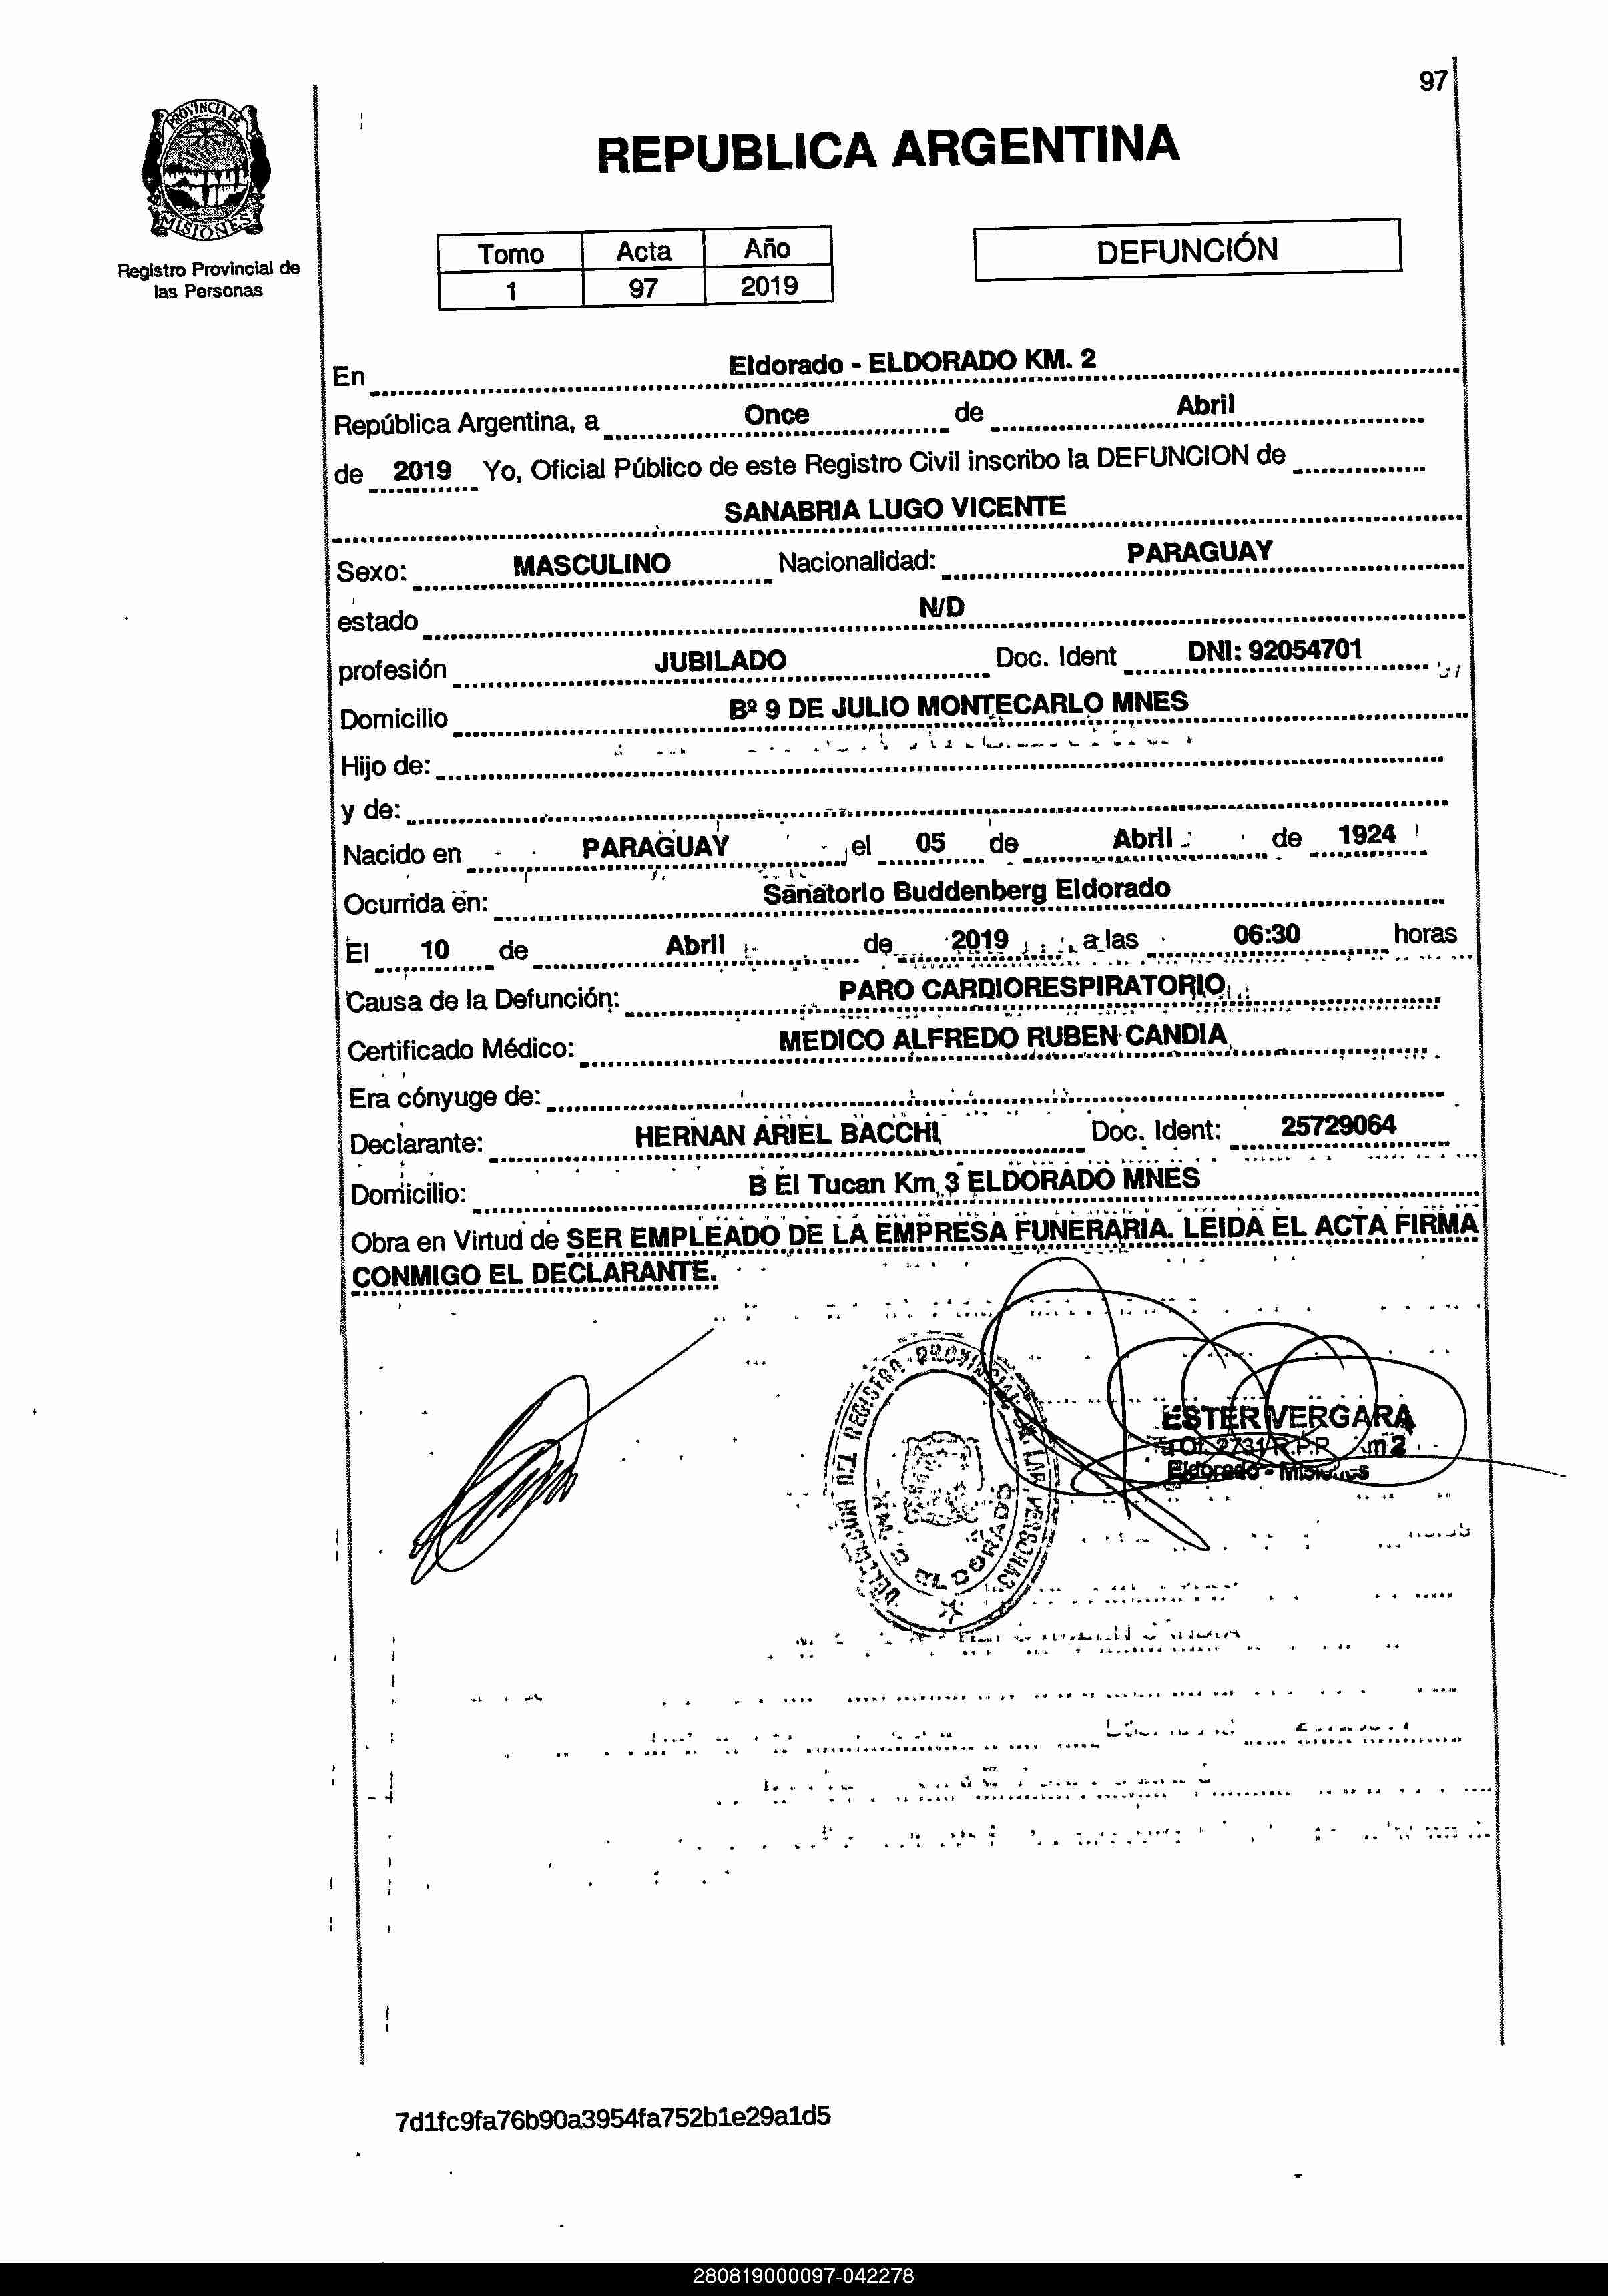 97
PROVINCIA DE
MISIONES
Registro Provincial de
las Personas
REPUBLICA ARGENTINA
Tomo Acta Año
1 97 2019
DEFUNCIÓN
En Eldorado - ELDORADO KM. 2
República Argentina, a Once de Abril
de 2019 Yo, Oficial Público de este Registro Civil inscribo la DEFUNCION de
SANABRIA LUGO VICENTE
Sexo: MASCULINO Nacionalidad: PARAGUAY
estado N/D
profesión JUBILADO Doc. Ident DNI: 92054701
Domicilio Bº 9 DE JULIO MONTECARLO MNES
Hijo de:
y de:
Nacido en PARAGUAY el 05 de Abril de 1924
Ocurrida en: Sanatorio Buddenberg Eldorado
El 10 de Abril de 2019 a las 06:30 horas
Causa de la Defunción: PARO CARDIORESPIRATORIO
Certificado Médico: MEDICO ALFREDO RUBEN CANDIA
Era cónyuge de:
Declarante: HERNAN ARIEL BACCHI Doc. Ident: 25729064
Domicilio: B El Tucan Km 3 ELDORADO MNES
Obra en Virtud de SER EMPLEADO DE LA EMPRESA FUNERARIA. LEIDA EL ACTA FIRMA
CONMIGO EL DECLARANTE.
REGISTRO PROVINCIAL DE LAS PERSONAS
KM. 2 ELDORADO
ESTER VERGARA
Of. 2731 R.P.P. Km 2
Eldorado - Misiones
7d1fc9fa76b90a3954fa752b1e29a1d5
280819000097-042278